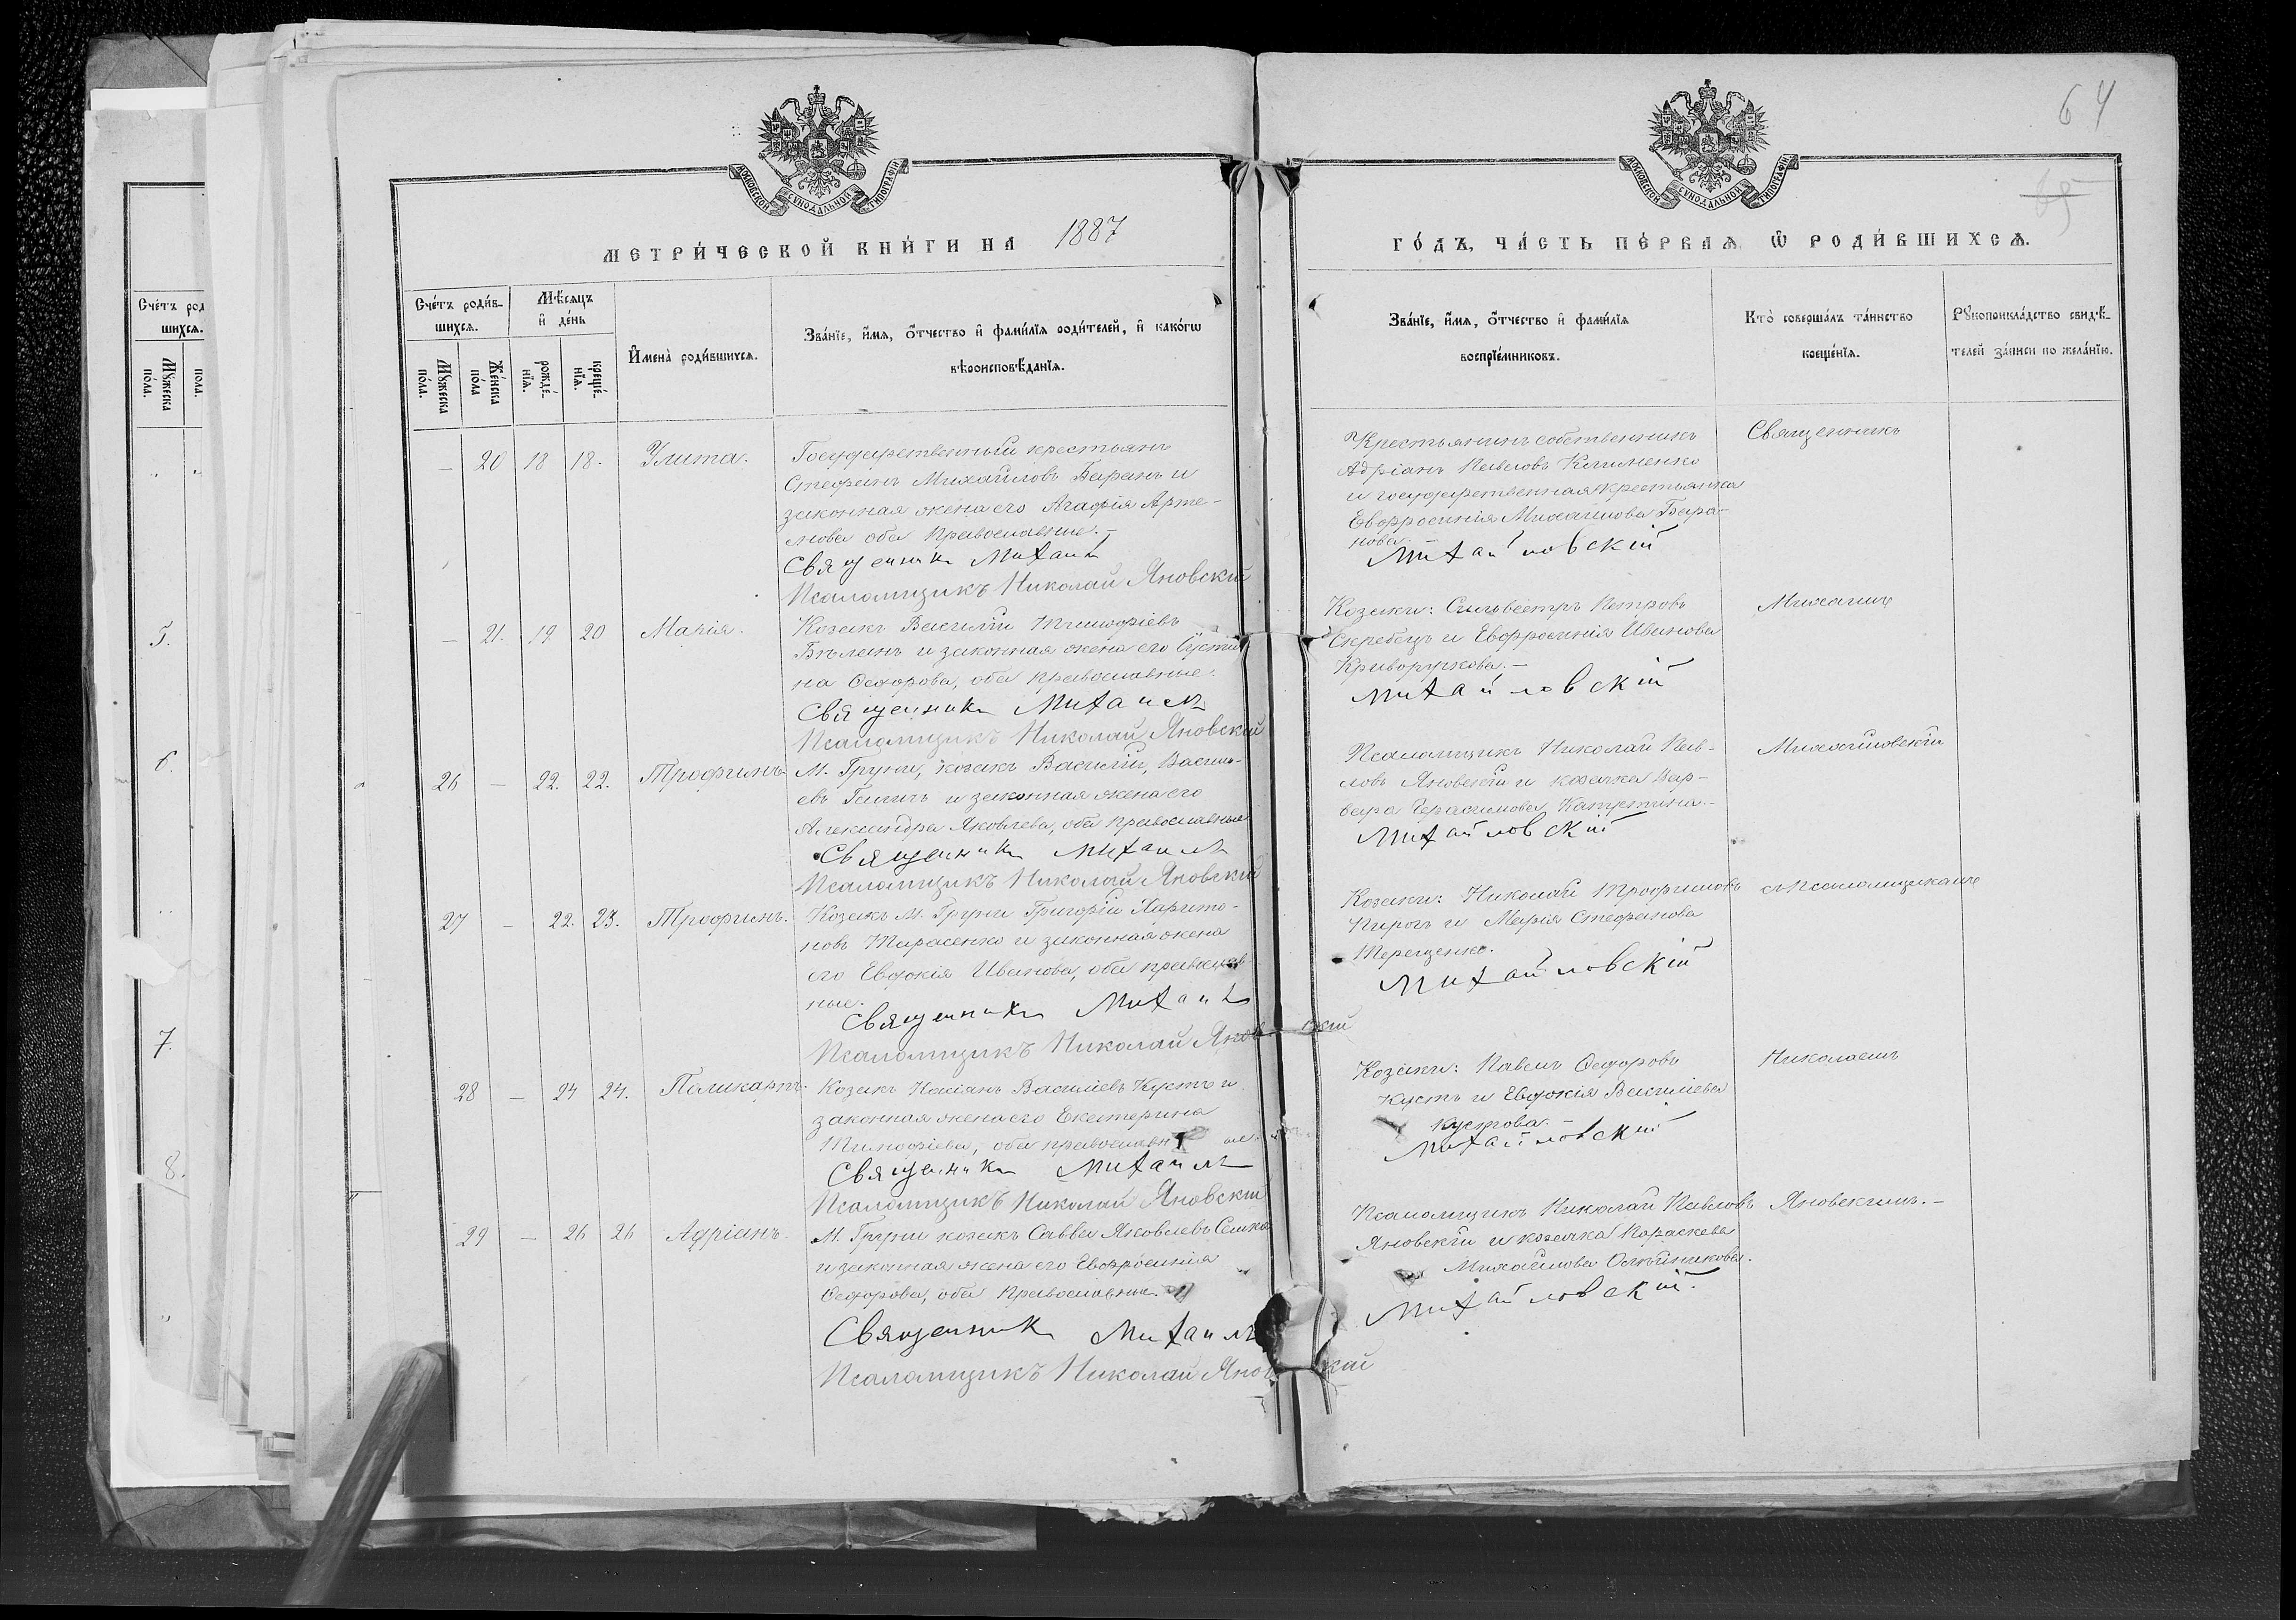 64
65
МОСКОВСКОЙ СѴНОДАЛЬНОЙ ТИПОГРАФІИ
МОСКОВСКОЙ СѴНОДАЛЬНОЙ ТИПОГРАФІИ
МЕТРИ́ЧЕСКОЙ КНИ́ГИ НА 1887
ГО́ДЪ, ЧА́СТЬ ПЕ́РВАѦ, Ѽ РОДИ́ВШИХСѦ.
Сче́тъ роди́в-
шихсѧ.
Мѣ́сѧцъ
и҆ де́нь
Мꙋ́жеска
по́ла.
Же́нска
по́ла
рожде́-
нїѧ.
креще́-
нїѧ.
И҆мена̀ роди́вшихсѧ.
Зва́нїе, и҆́мѧ, ѻ҆́тчество и҆ фами́лїѧ роди́телей, и҆ како́гѡ
вѣроисповѣ́данїѧ.
Зва́нїе, и҆́мѧ, ѻ҆́тчество и҆ фами́лїѧ
воспрїе́мниковъ.
Кто̀ соверша́лъ та́инство
креще́нїѧ.
Рꙋкоприкла́дство свидѣ́-
телей за́писи по жела́нїю.
Сче́тъ род
шихсѧ.
Мꙋ́жеска
по́ла.
пола.
5.
6.
7.
8.
— 20 18 18. Улита.
Государственный крестьянъ
Стефанъ Михайловъ Баранъ и
законная жена его Агафія Арте-
мова оба православные.—
Священникъ Михаилъ
Псаломщикъ Николай Яновскій
Крестьянинъ собственникъ
Адріанъ Павловъ Клименко
и государственная крестьянка
Евфросинія Михайлова Бара-
нова.
Михайловскій
Священникъ
— 21. 19. 20 Марія.
Козакъ Василій Тимофіевъ
и законная жена его Їусти
на Федорова, оба православные.
Священникъ Михаилъ
Псаломщикъ Николай Яновскій
Козаки: Сильвестръ Петровъ
Скребецъ и Евфросинія Иванова
Криворучкова.—
Михайловскій
Михаилъ
26 — 22. 22. Трофимъ
М. Груни, козакъ Василій, Василь-
евъ и законная жена его
Александра Яковлева, оба православные
Священникъ Михаилъ
Псаломщикъ Николай Яновскій
Псаломщикъ Николай Пав-
ловъ Яновскій и козачка Вар-
вара Герасимова
Михайловскій
Михайловскій
27 — 22. 23. Трофимъ.
Козакъ М. Груни Григорій Харито-
новъ Тарасенко и законная жена
его Евдокія Иванова, оба православ-
ные.
Священникъ Михаилъ
Псаломщикъ Николай Яновскій
Козаки: Николай Трофимовъ
Пирогъ и Марія Стефанова
Терещенко.
Михайловскій
съ псаломщикомъ
28 — 24 24. Поликарпъ.
Козакъ Касіянъ Василіевъ Кустъ и
законная жена его Екатерина
Тимофіева, оба православные.
Священникъ Михаилъ
Псаломщикъ Николай Яновскій
Козаки: Павелъ Федоровъ
Кустъ и Евдокія Василіева
Кустова.—
Михайловскій
Николаемъ
29 — 26 26 Адріанъ.
М. Груни козакъ Савва Яковлевъ
и законная жена его Евфросинія
Федорова, оба православные.
Священникъ Михаилъ
Псаломщикъ Николай Яновскій
Псаломщикъ Николай Павловъ
Яновскій и козачка Параскева
Михайлова Олейникова.
Михайловскій.
Яновскимъ.—